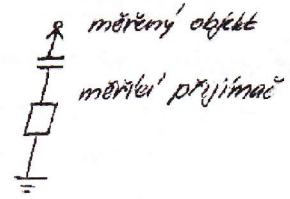 měřený objekt
měřící přijímač